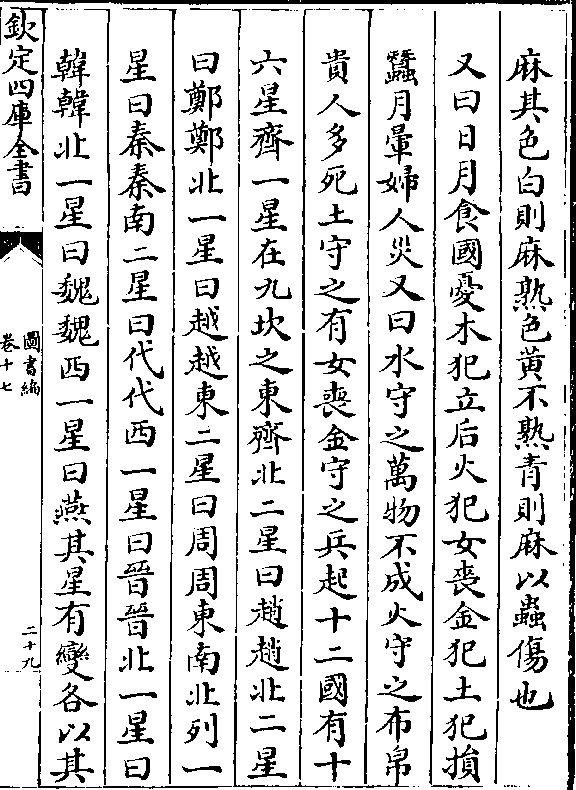 麻其色白則麻熟色黄不熟青則麻以蟲傷也
又曰日月食國憂木犯立后火犯女喪金犯土犯損
蠶月暈婦人災又曰水守之萬物不成火守之布帛
貴人多死土守之有女喪金守之兵起十二國有十
六星齊一星在九坎之東齊北二星曰趙趙北二星
曰鄭鄭北一星曰越越東二星曰周周東南北列一
星曰秦秦南二星曰代代西一星曰晉晉北一星曰
韓韓北一星曰魏魏西一星曰燕其星有變各以其
欽定四庫全書
圖書編
卷十七
二十九